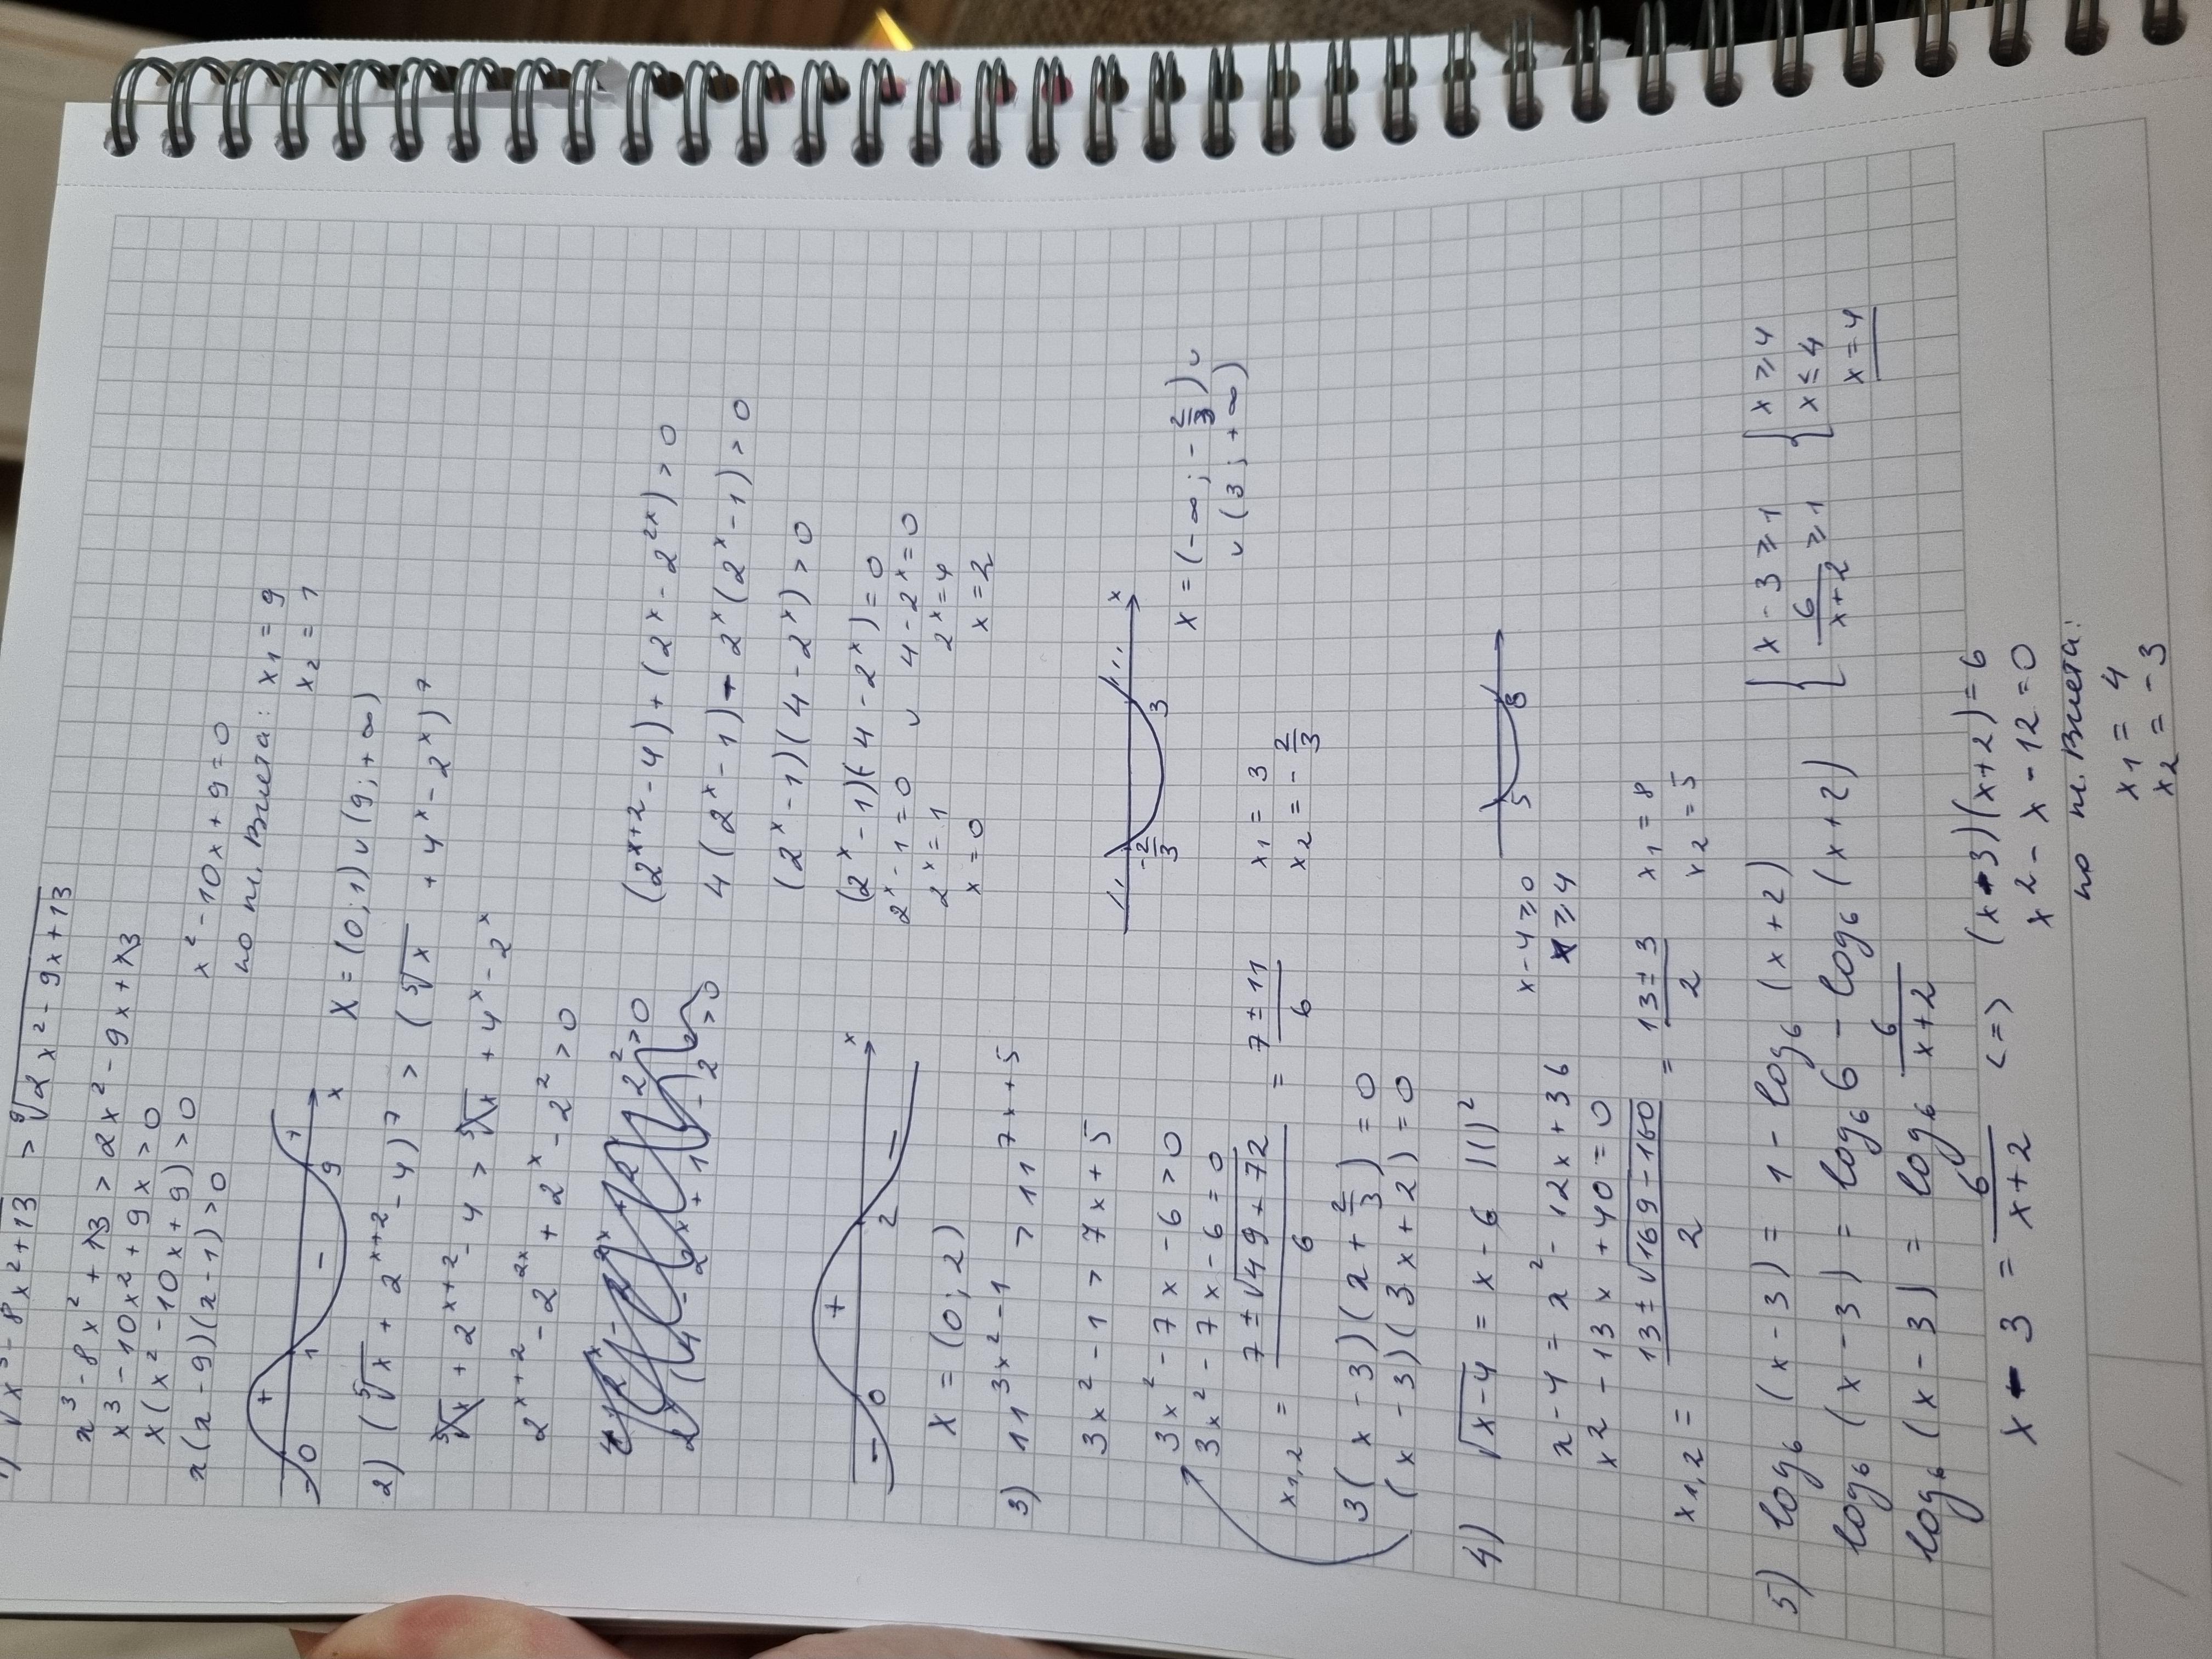 1) √x³ - 8x² + 13 > ⁹√2x² - 9x + 13
x³ - 8x² + 13 > 2x² - 9x + 13
x³ - 10x² + 9x > 0
x(x² - 10x + 9) > 0
x(x - 9)(x - 1) > 0
x² - 10x + 9 = 0
по т. Виета: x₁ = 9
x₂ = 1
+ - +
0 1 9 x
X = (0; 1) ∪ (9; + ∞)
2) (⁵√x + 2^(x+2) - 4)⁷ > (⁵√x + 4^x - 2^x)⁷
⁵√x + 2^(x+2) - 4 > ⁵√x + 4^x - 2^x
2^(x+2) - 2^(2x) + 2^x - 2² > 0
(2^(x+2) - 4) + (2^x - 2^(2x)) > 0
4(2^x - 1) - 2^x(2^x - 1) > 0
(2^x - 1)(4 - 2^x) > 0
(2^x - 1)(4 - 2^x) = 0
2^x - 1 = 0 ∪ 4 - 2^x = 0
2^x = 1 2^x = 4
x = 0 x = 2
- + -
0 2 x
X = (0; 2)
3) 11^(3x² - 1) > 11^(7x + 5)
3x² - 1 > 7x + 5
3x² - 7x - 6 > 0
3x² - 7x - 6 = 0
x₁,₂ = (7 ± √49 + 72)/6 = (7 ± 11)/6 x₁ = 3
x₂ = - 2/3
3(x - 3)(x + 2/3) = 0
(x - 3)(3x + 2) = 0
-2/3 3 x
X = (- ∞; - 2/3) ∪
∪ (3; + ∞)
4) √x - 4 = x - 6 |()²
x - 4 = x² - 12x + 36
x² - 13x + 40 = 0
x - 4 ⩾ 0
x ⩾ 4
5 8
x₁,₂ = (13 ± √169 - 160)/2 = (13 ± 3)/2 x₁ = 8
x₂ = 5
5) log₆ (x - 3) = 1 - log₆ (x + 2)
log₆ (x - 3) = log₆ 6 - log₆ (x + 2)
log₆ (x - 3) = log₆ 6/(x + 2)
{ x - 3 ⩾ 1 { x ⩾ 4
{ 6/(x + 2) ⩾ 1 { x ≤ 4
x = 4
x - 3 = 6/(x + 2) <=> (x - 3)(x + 2) = 6
x² - x - 12 = 0
по т. Виета:
x₁ = 4
x₂ = - 3